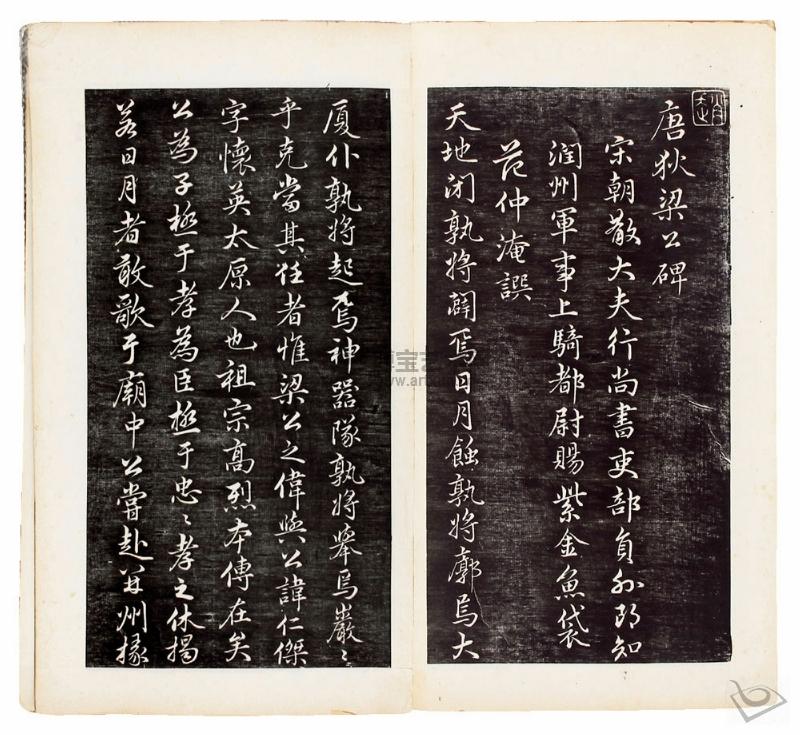 唐狄梁公碑
宋朝散大夫行尚書吏部員外郎知
潤州軍事上騎都尉賜紫金魚袋
范仲淹譔
天地閉孰將闢焉日月蝕孰將廓焉大
厦仆孰將起焉神器隊孰將舉焉巖〻
乎克當其任者惟梁公之偉與公諱仁傑
字懷英太原人也祖宗高烈本傳在矣
公為子極于孝為臣極于忠〻孝之休揭
若日月者敢歌于廟中公嘗赴并州掾